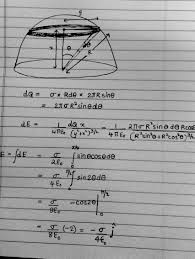 y
x
θ
dθ
dQ = σ × Rdθ × 2πRsinθ
= 2πσR²sinθdθ
dE = 1/4πε₀ dQ x/(y²+x²)^3/2 = 1/4πε₀ 2πσR²sinθdθ Rcosθ/(R²sin²θ+R²cos²θ)^3/2
E = ∫dE = σ/2ε₀ ∫₀^π/2 sinθcosθdθ
= σ/4ε₀ ∫₀^π/2 sin2θdθ
= σ/8ε₀ -cos2θ |₀^π/2
= σ/8ε₀ (-2) = -σ/4ε₀ ĵ